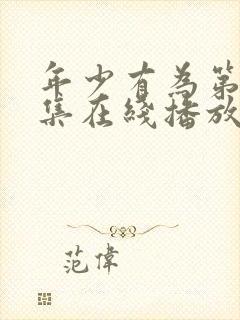 年少有為第
集在綫播放
范偉